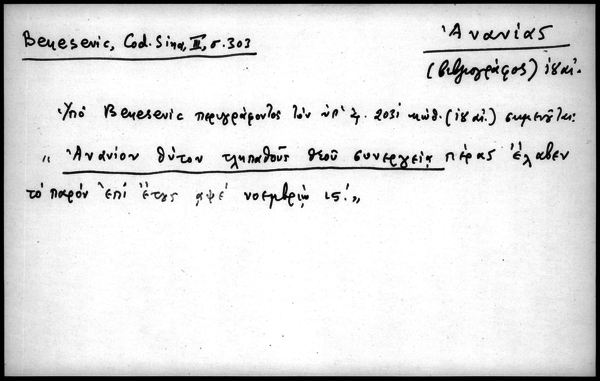 Benesevic, Cod. Sina, III, σ. 303
Ἀνανίας
(βιβλιογράφος) ιη αἰ.
Ὑπό Benesevic περιγράφοντος τὸν ὑπ' ἀρ. 2031 κώδ. (ιη αἰ.) σημειοῦται:
„ Ἀνανίου θύτου τληπαθοῦς θεοῦ συνεργείᾳ πέρας ἔλαβεν
τὸ παρὸν ἐπί ἔτους αψε΄ νοεμβρίῳ 15.„